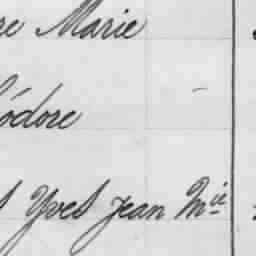 re Marie
éodore
s Yves Jean Mie